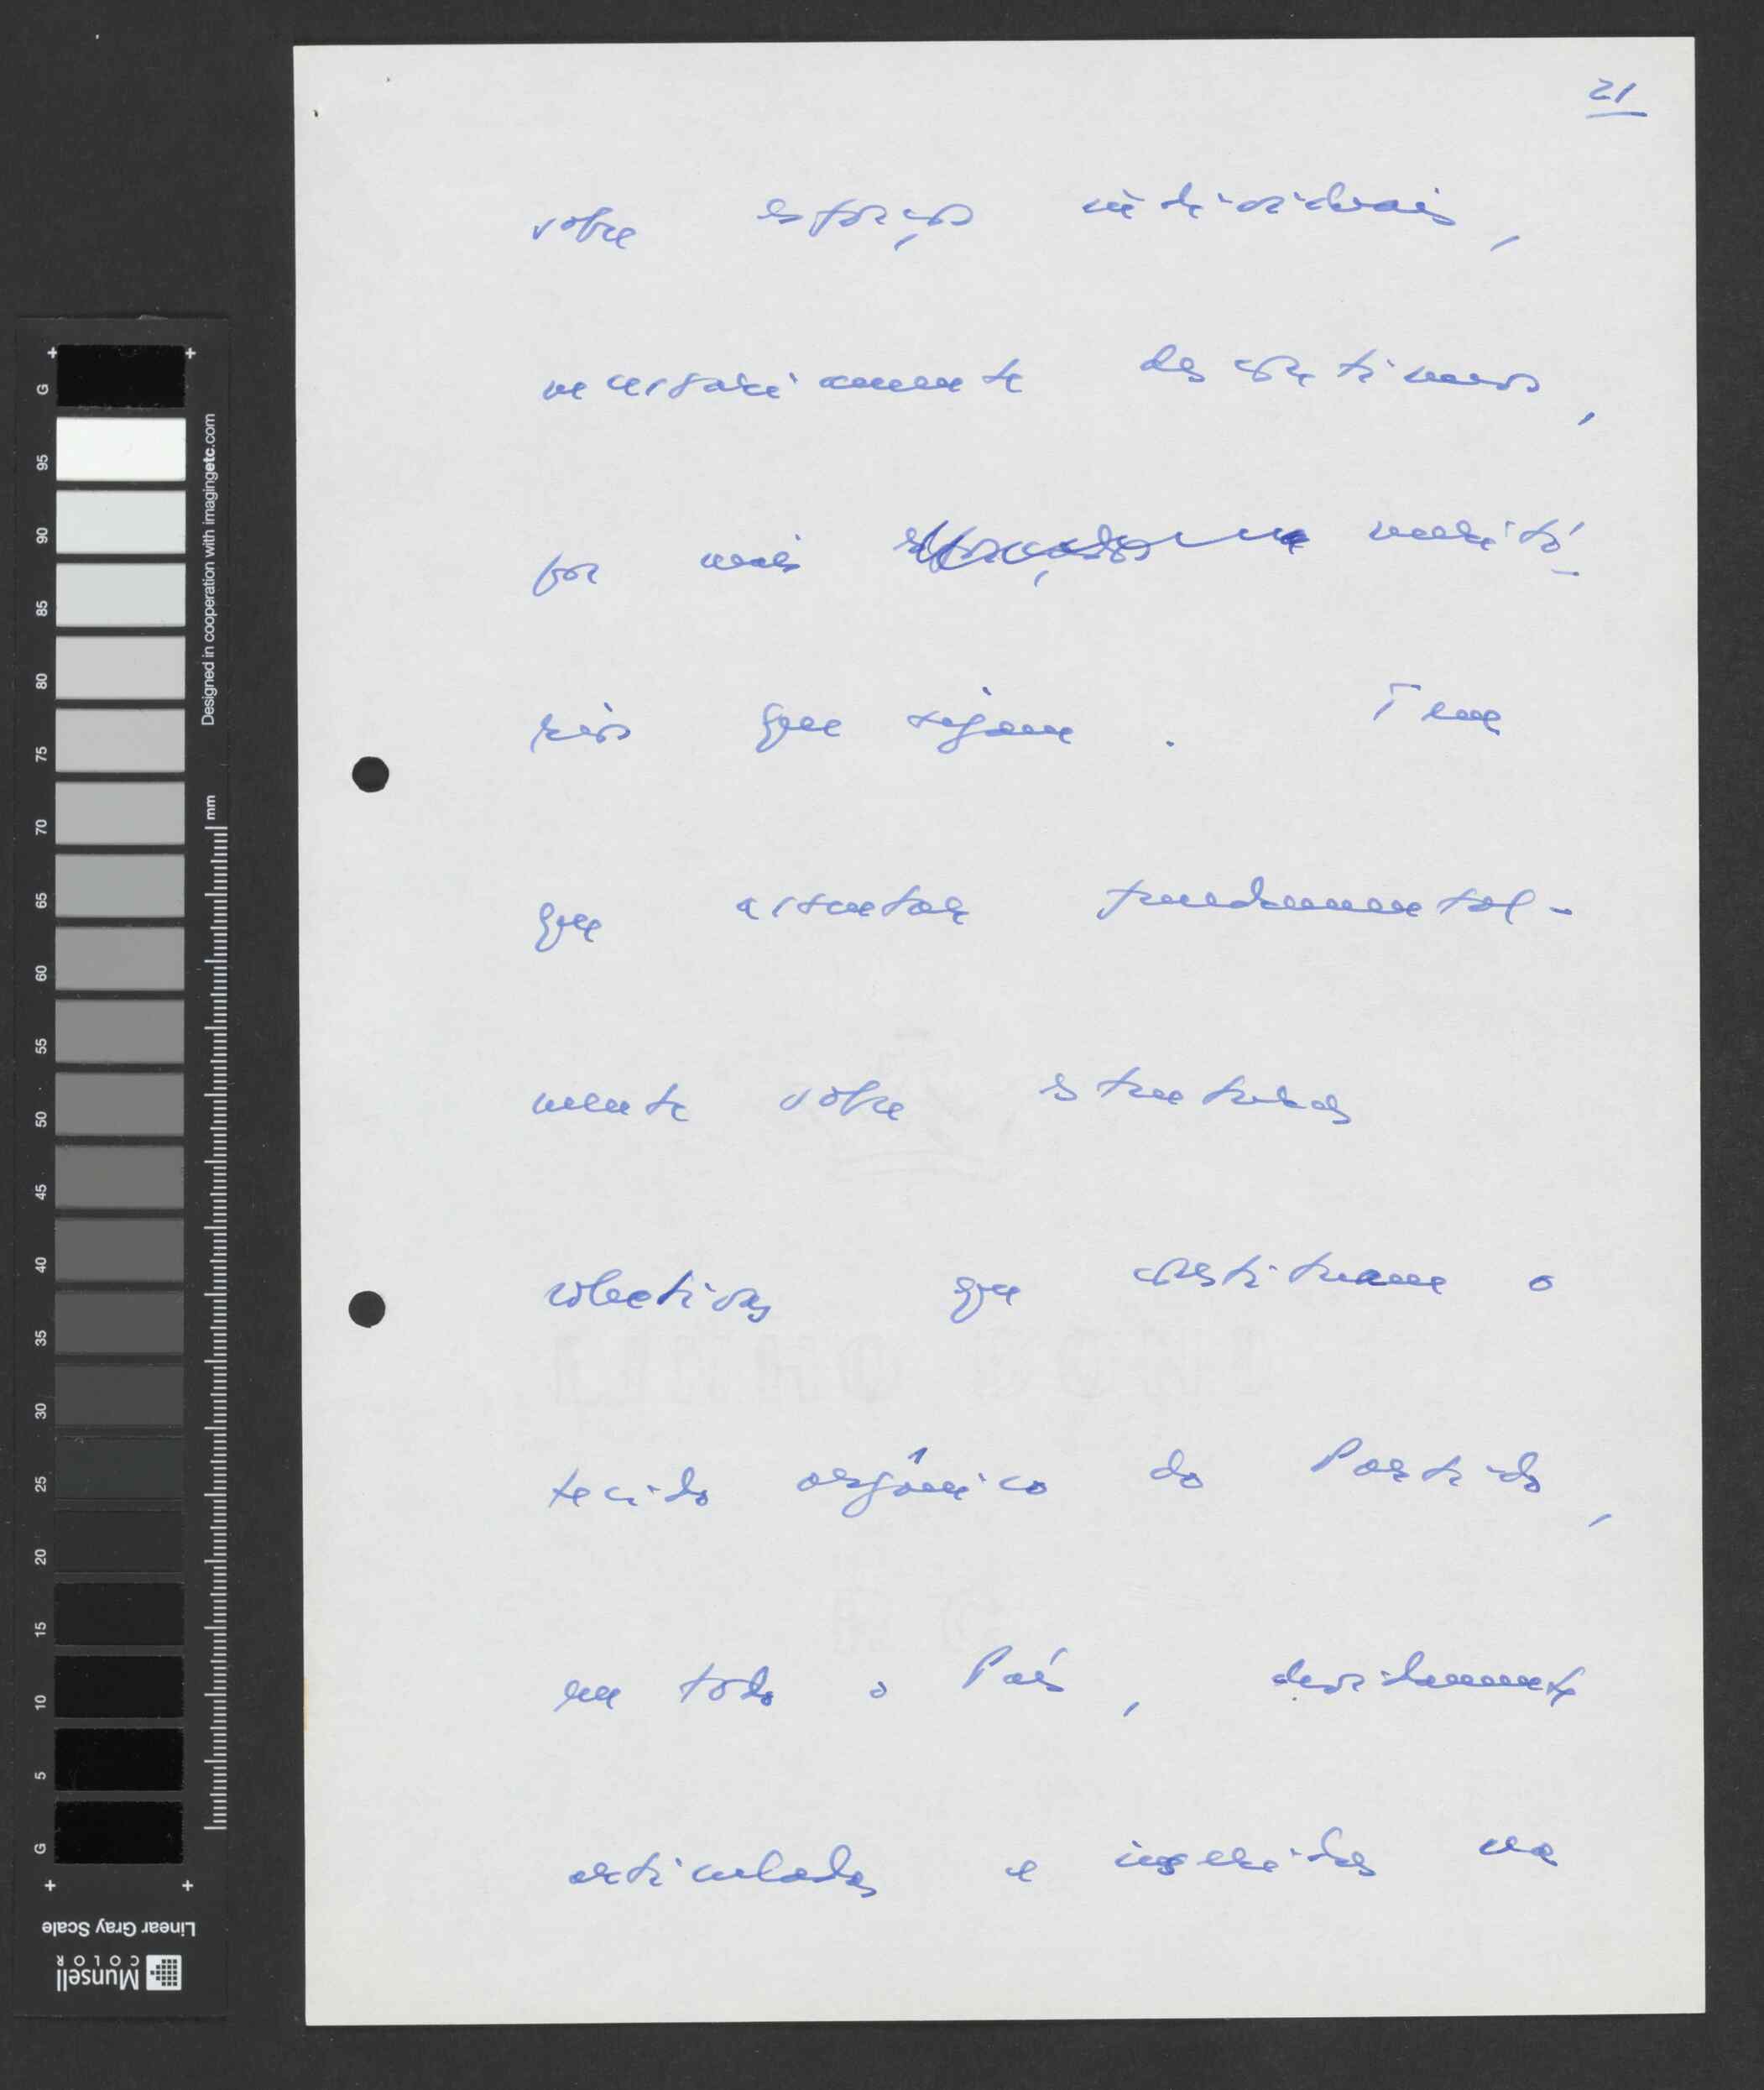 21
sobre esforços individuais,
necessariamente descontínuos,
por mais meritó-
rios que sejam. Tem
que assentar fundamental-
mente sobre estruturas
colectivas que constituam o
tecido orgânico do Partido,
em todo o País, devidamente
articuladas e inseridas na
G 95 90 85 80 75 70 65 60 55 50 45 40 35 30 25 20 15 10 5 G
Designed in cooperation with imagingetc.com
mm
Linear Gray Scale
Munsell
COLOR
LINHO 2002